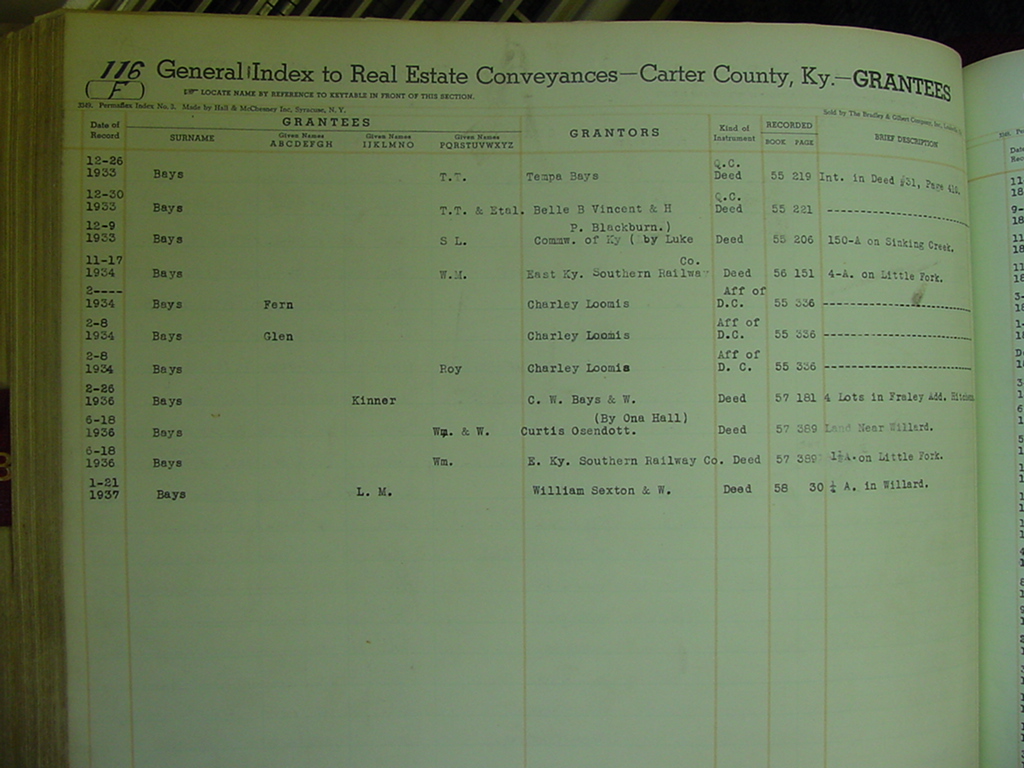 116
F
General Index to Real Estate Conveyances—Carter County, Ky.—GRANTEES
LOCATE NAME BY REFERENCE TO KEYTABLE IN FRONT OF THIS SECTION.
Permaflex Index No. 3. Made by Hall & McChesney Inc, Syracuse, N. Y.
Sold by The Bradley & Gilbert Company, Inc.
Date of Record GRANTEES GRANTORS Kind of Instrument RECORDED BRIEF DESCRIPTION
SURNAME Given Names ABCDEFGH Given Names IJKLMNO Given Names PQRSTUVWXYZ BOOK PAGE
12-26 Q.C.
1933 Bays T.T. Tempa Bays Deed 55 219 Int. in Deed #31, Page 416.
12-30 Q.C.
1933 Bays T.T. & Etal. Belle B Vincent & H Deed 55 221 ----------------------
12-9 P. Blackburn.)
1933 Bays S L. Commw. of Ky ( by Luke Deed 55 206 150-A on Sinking Creek.
11-17 Co.
1934 Bays W.M. East Ky. Southern Railway Deed 56 151 4-A. on Little Fork.
2---- Aff of
1934 Bays Fern Charley Loomis D.C. 55 336 ----------------------
2-8 Aff of
1934 Bays Glen Charley Loomis D.C. 55 336 ----------------------
2-8 Aff of
1934 Bays Roy Charley Loomis D. C. 55 336 ----------------------
2-26
1936 Bays Kinner C. W. Bays & W. Deed 57 181 4 Lots in Fraley Add.
6-18 (By Ona Hall)
1936 Bays Wm. & W. Curtis Osendott. Deed 57 389 Land Near Willard.
6-18
1936 Bays Wm. E. Ky. Southern Railway Co. Deed 57 389 1½A. on Little Fork.
1-21
1937 Bays L. M. William Sexton & W. Deed 58 30 ¼ A. in Willard.